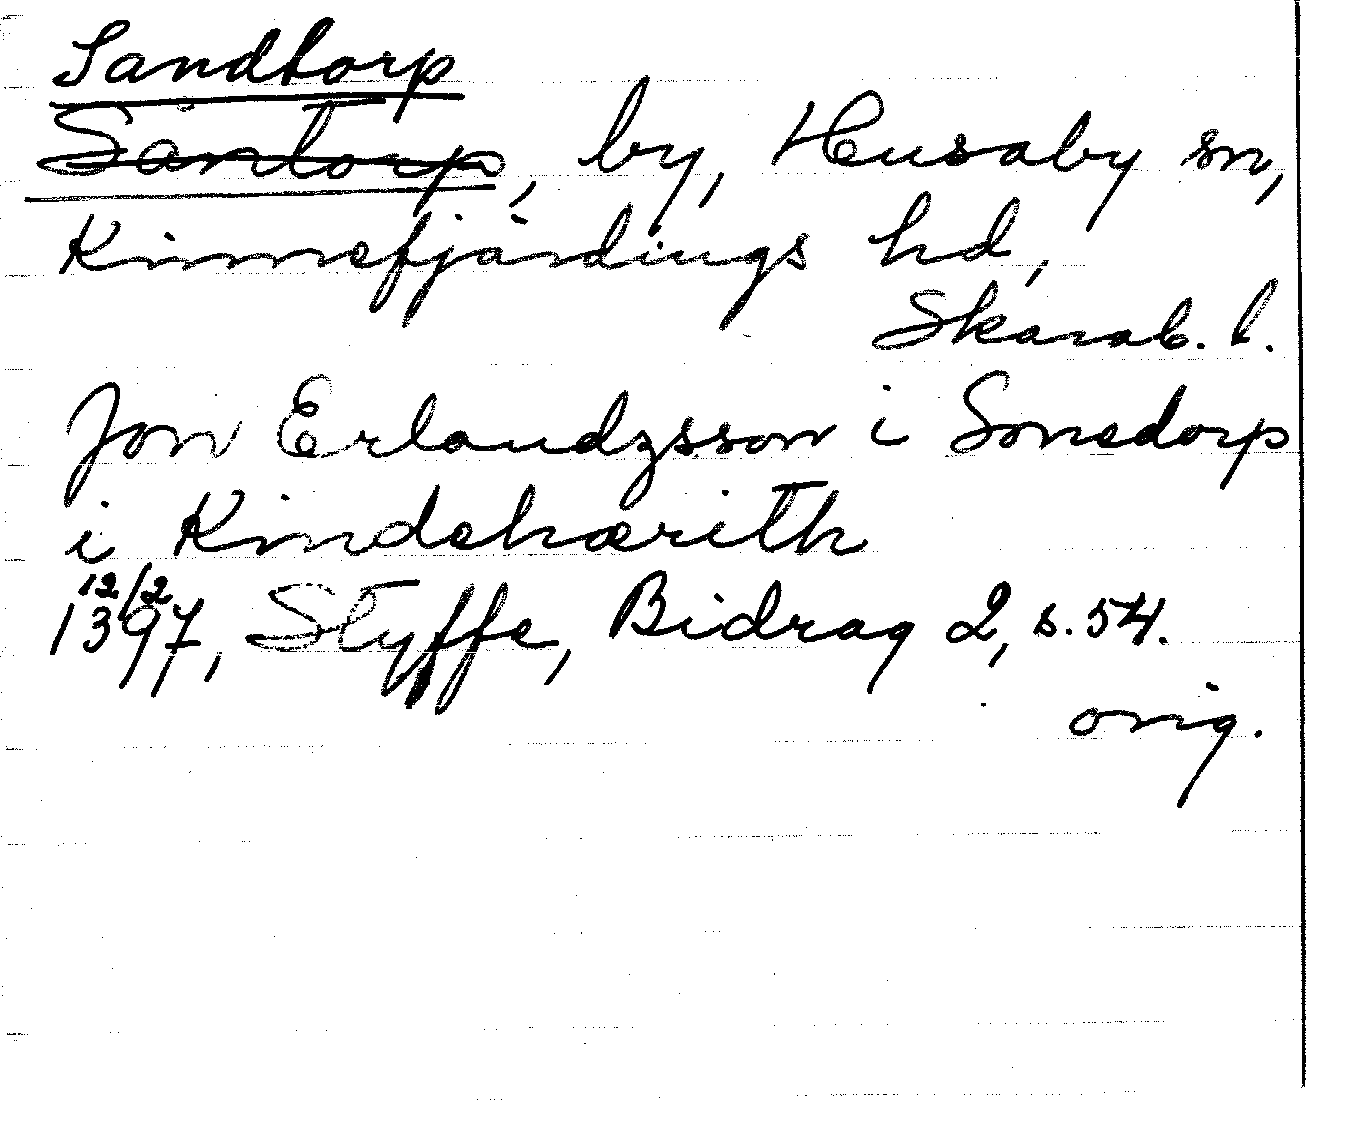 Sandtorp
Santorp, by, Husaby sn,
Kinnefjärdings hd,
Skarab. l.
Jon Erlandzsson i Sonedorp
i Kindehærith
12/2
1397, Styffe, Bidrag 2, s. 54.
orig.